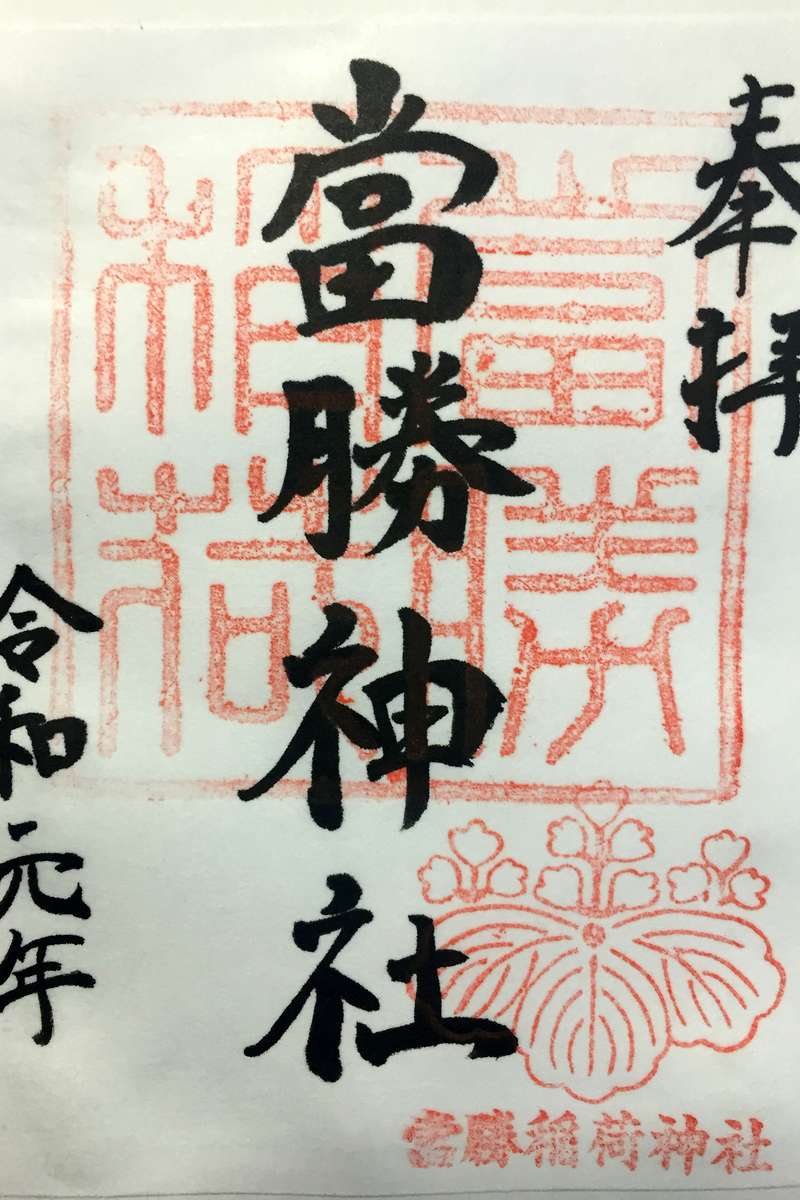 奉拝
當勝神社
令和元年
當勝稲荷
當勝稲荷神社